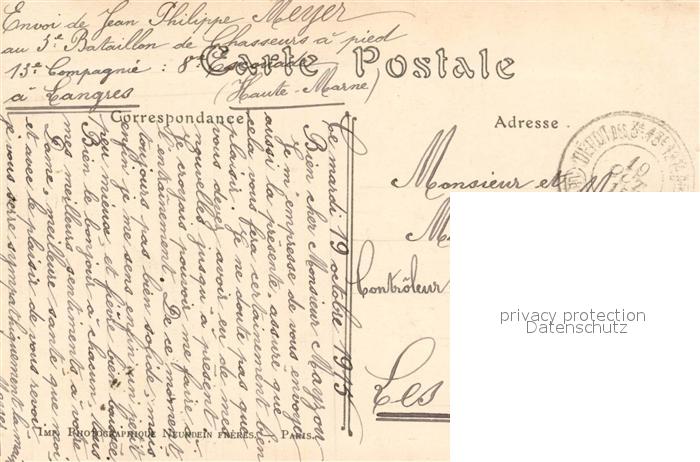 Envoi de Jean Philippe Meyer
au 5e Bataillon de Chasseurs à pied
13e Compagnie : 8e Escouade
à Langres (Haute-Marne)
Carte Postale
Correspondance
Adresse
Le mardi 19 octobre 1915
Bien cher Monsieur
Je m'empresse de vous envoyer
aussi la présente, assuré que
cela vous fera certainement bien
plaisir. Je ne doute pas que
vous devez avoir eu de mes
nouvelles jusqu'à présent.
Je croyais pouvoir me faire à
l'entraînement. De ce moment
toujours pas bien solide, mais
enfin je me sens enfin un petit
peu mieux, et
Bien le bonjour à chacun, tous
mes meilleurs sentiments à votre
Dame, meilleure santé que moi
et avec le plaisir de vous revoir
je vous serre sympathiquement la main
Meyer
Monsieur et M
Contrôleur
Les
DÉPÔT DES
19
OCT
IMP. PHOTOGRAPHIQUE NEURDEIN FRÈRES. PARIS.
privacy protection
Datenschutz